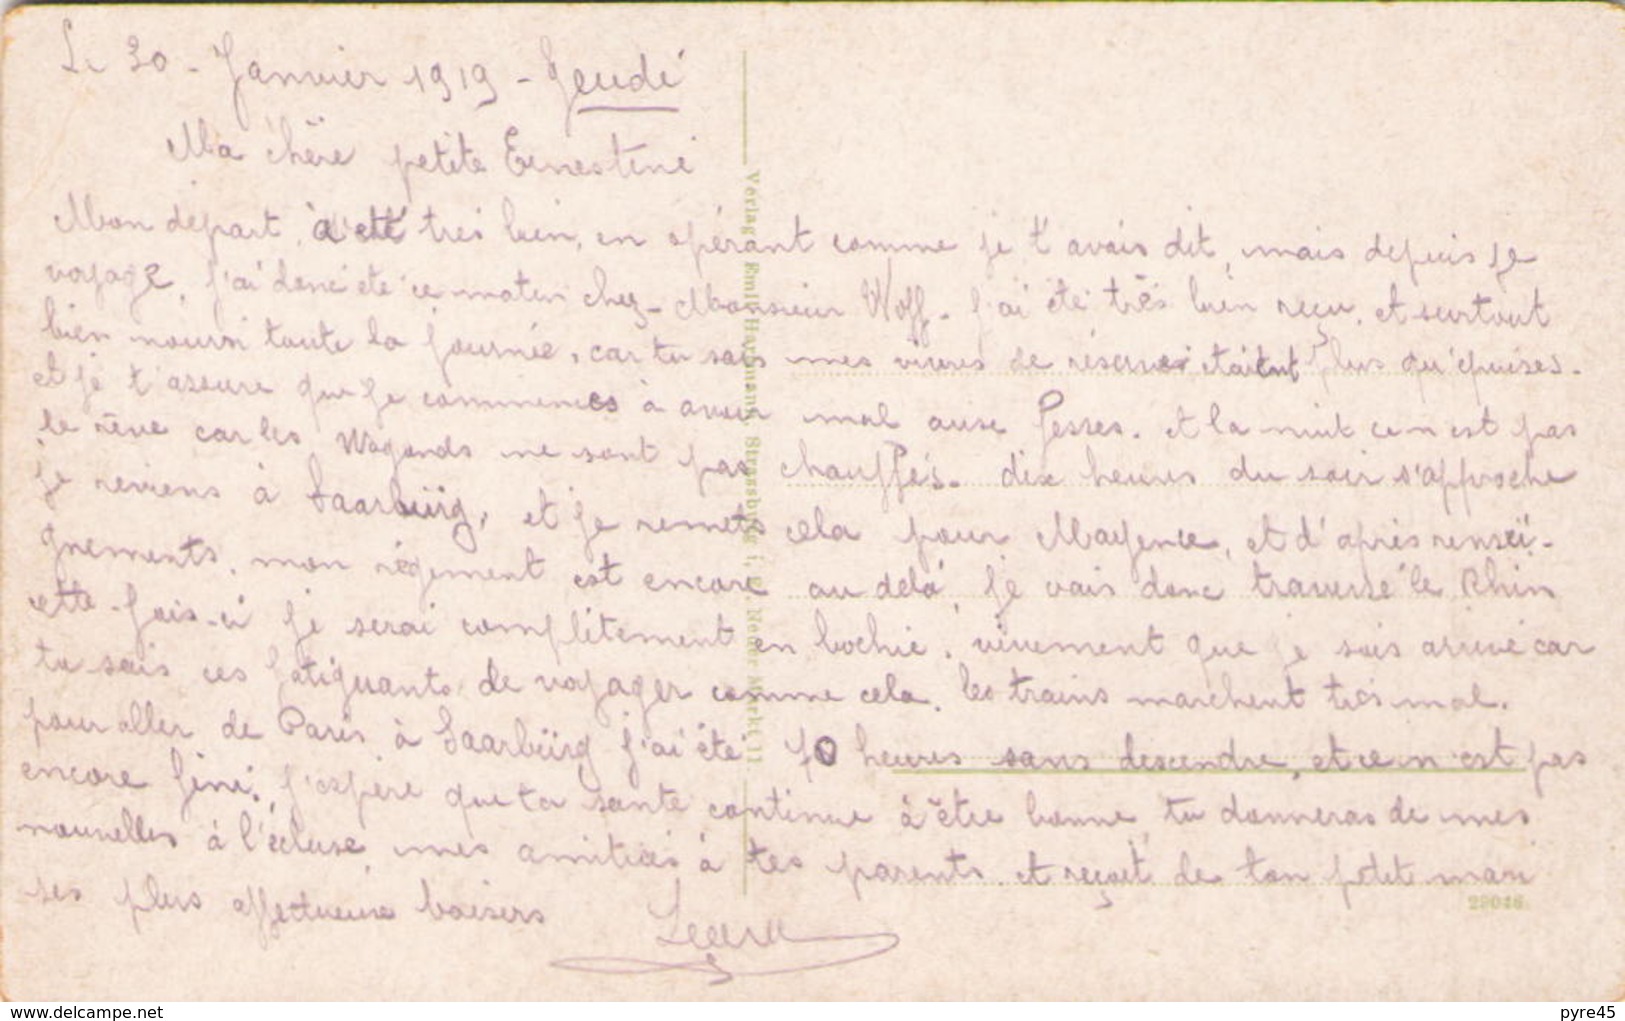 Le 30 - Janvier 1919 - Jeudi
Ma chère petite Ernestine
Mon départ, a été très bien, en opérant comme je t'avais dit, mais depuis je
voyage, j'ai donc été ce matin chez - Monsieur Wolf. J'ai été très bien reçu, et surtout
bien nourri toute la journée, car tu sais mes vivres de réserves étaient plus qu'épuisés.
et je t'assure que je commences à avoir mal ause fesses. et la nuit ce n'est pas
le rêve car les Wagonds ne sont pas chauffés. dix heures du soir s'approche
je reviens à Saarbürg, et je remets cela pour Mayence, et d'après rensei-
gnements, mon régiment est encore au delà, je vais donc traversé le Rhin
cette-fois-ci je serai complètement en bochie. vivement que je sois arrivé car
tu sais ces fatiguants de voyager comme cela. les trains marchent très mal.
pour aller de Paris à Saarbürg j'ai été 40 heures sans descendre, et ce n'est pas
encore fini. J'espère que ta santé continue à être bonne, tu donneras de mes
nouvelles à l'écluse, mes amitiés à tes parents. et reçoit de ton petit mari
ses plus affectueuse baisers
Verlag Emil Hartmann, Strassburg i. Neuer Markt 11
29046
www.delcampe.net
pyre45